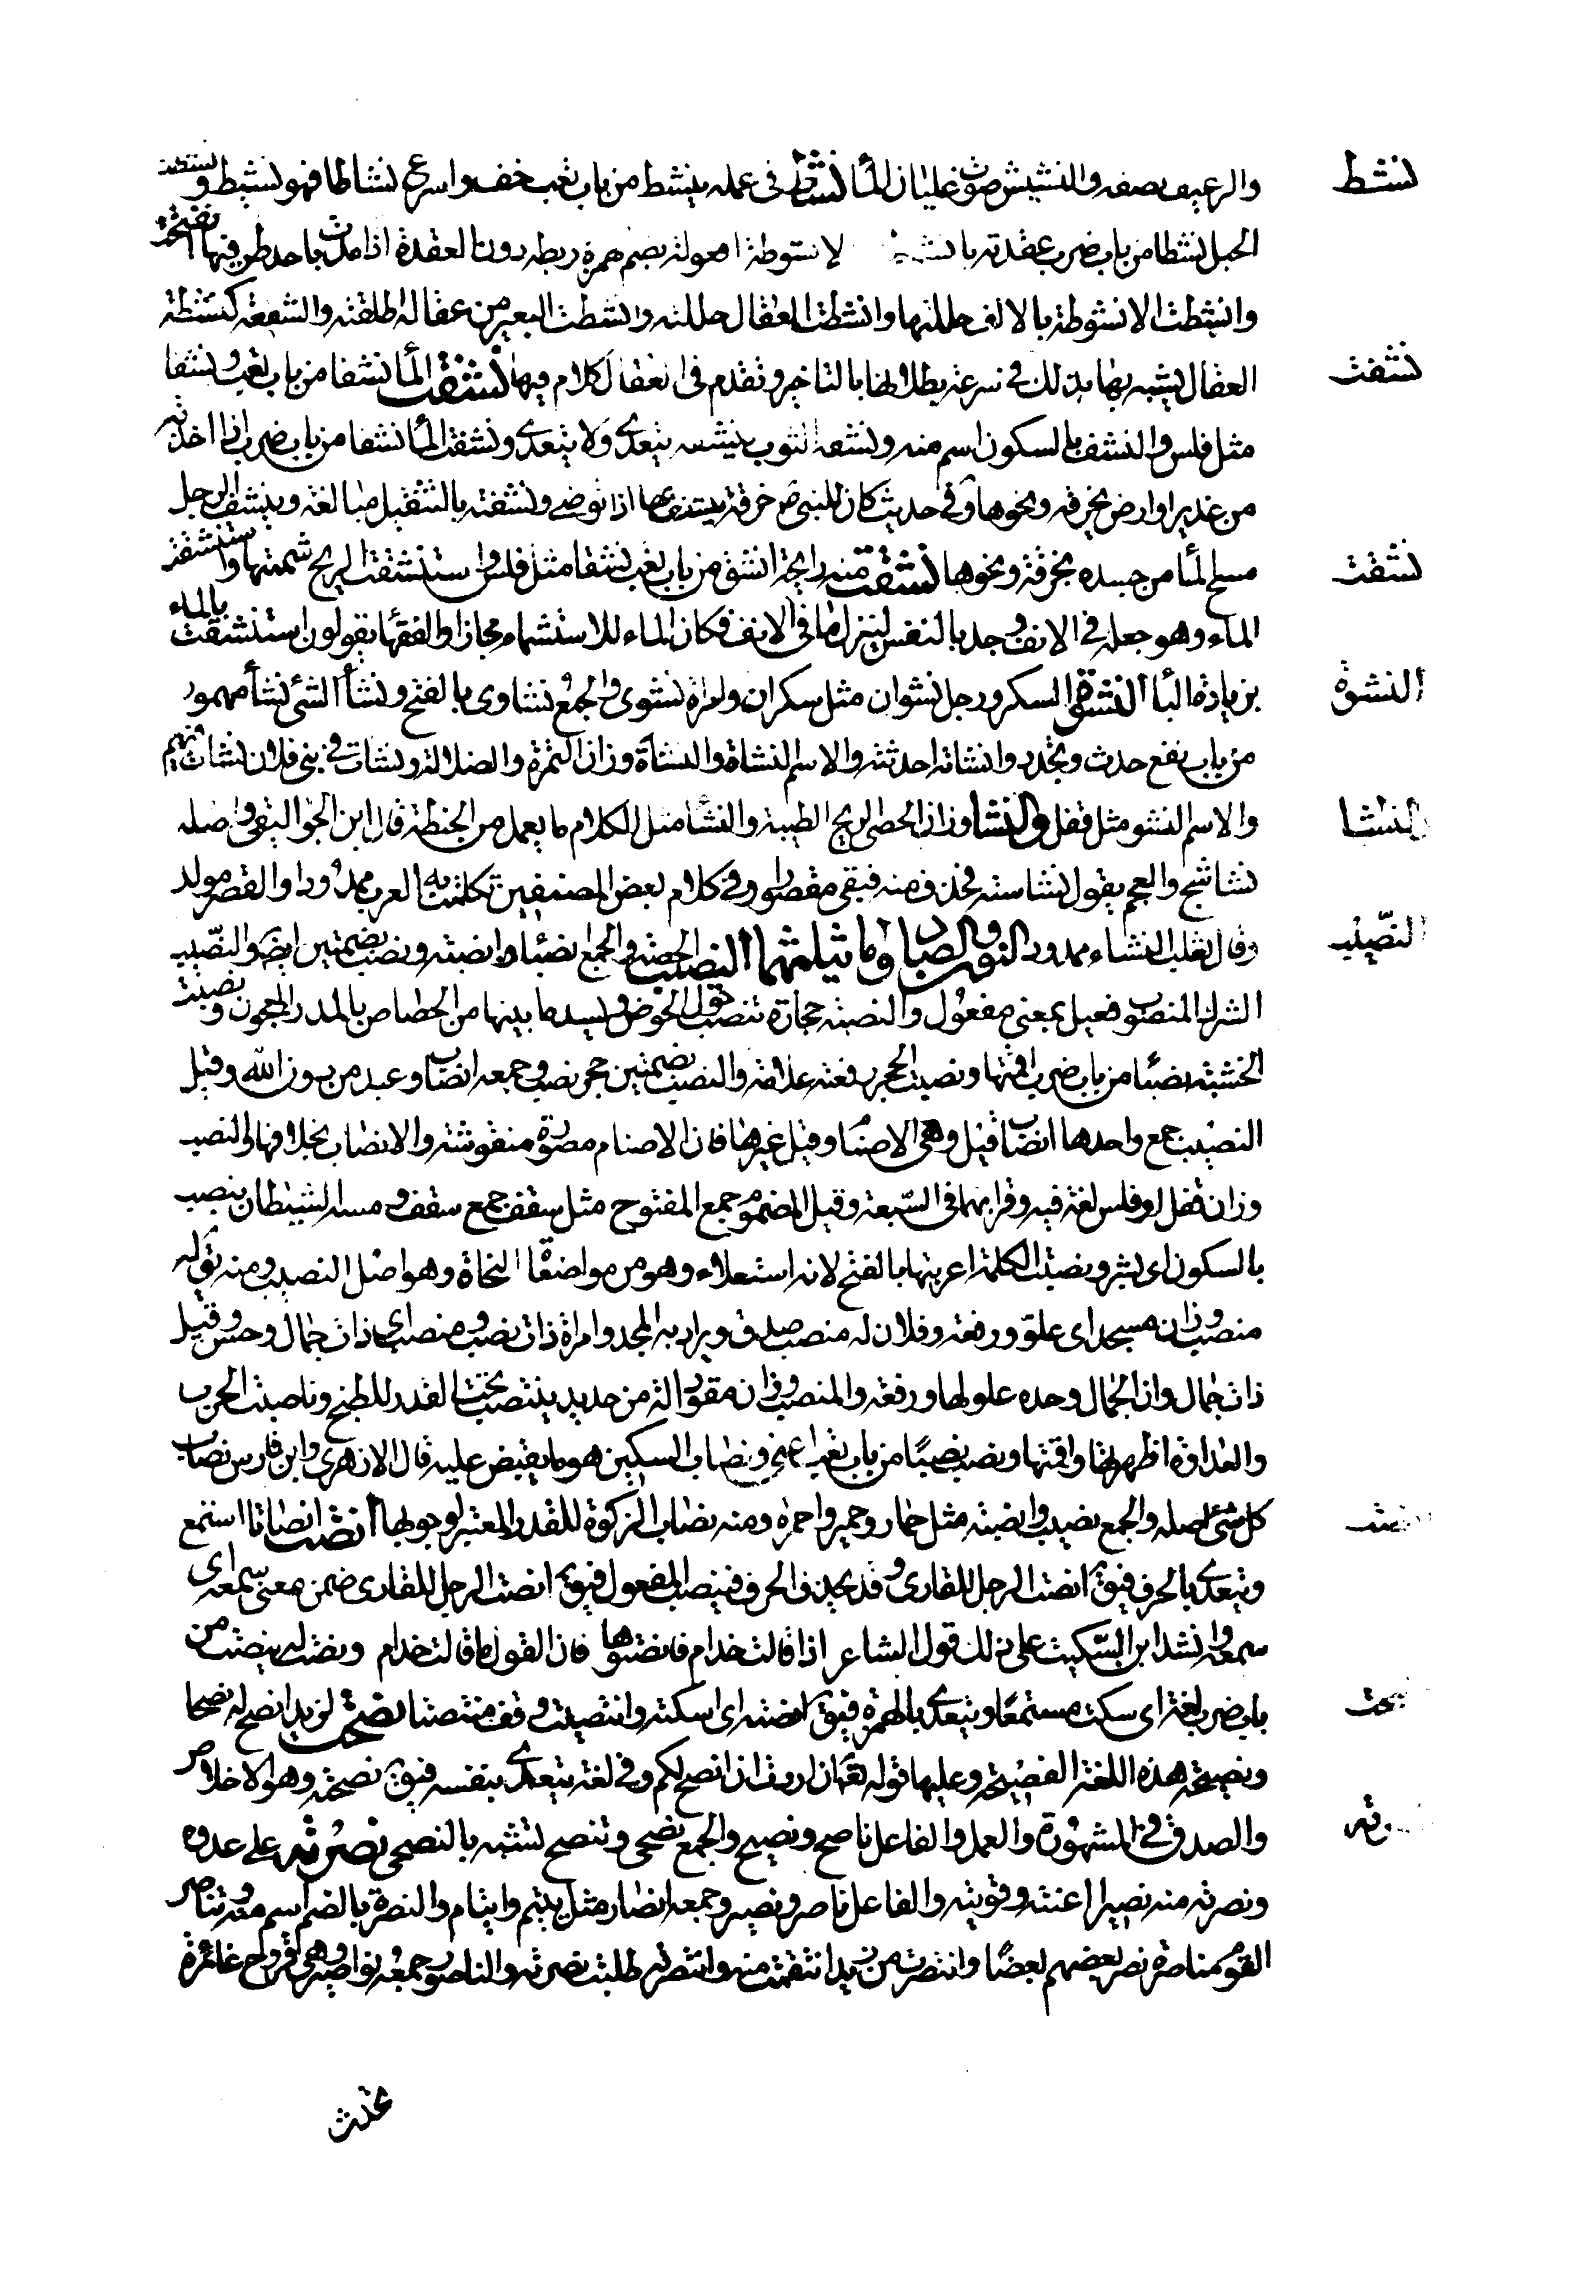 نشط
والرغيف نصفه والنشيش صوت غليان الماً نشط فى عمله ينشط من باب تعب خف واسرع نشاطا فهو نشيط ونشطت
الحبل نشطا من باب ضرب عقدته بانشوطة لانشوطة افعولة بضم همزة ربطة دون العقدة اذا مدت باحد طرفيها انفتحت
وانشطت الانشوطة بالالف حللتها وانشطت العقال حللته وانشطت البعير من عقاله اطلقته والشفعة كنشطة
نشفت
العقال يشبه بها بذلك فى سرعة بطلانها بالتاخير وتقدم فى العقال كلام فيها نشفت الماً نشفا من باب تعب ونشفا
مثل فلس والنشف بالسكون اسم منه ونشفه الثوب ينشفه يتعدى ولا يتعدى ونشفت الماً نشفا من باب ضرب اذا اخذته
من غدير او ارض بخرقة ونحوها وفى حديث كان للنبى ص خرقة ينشف بها اذا توضى ونشفته بالتثقيل مبالغة وينشف الرجل
نشقت
مسح الماً من جسده بخرقة ونحوها نشقت منه رايحة انشق من باب تعب نشقا مثل فلس واستنشقت الريح شممتها واستنشقت
الماء وهو جعله فى الانف وجذبه بالنفس لينزل ما فى الانف فكان الماء للاستشمام مجازا والفقهاً يقولون استنشقت بالماء
النشوة
بزيادة الباً النشوة السكر ورجل نشوان مثل سكران وامراة نشوى والجمع نشاوى بالفتح ونشأ الشئ نشأ مهموز
من باب نفع حدث وتجدد وانشاته احدثته والاسم النشاة والنشاءة وزان التمرة والضلالة ونشات فى بنى فلان نشات فيهم
النشا
والاسم النشو مثل قفل والنشا وزان الحصى الريح الطيبة والنشا مثل الكلام ما يعمل من الحنطة قال ابن الجواليقى واصله
نشاشج والعجم يقول نشاسته فحذف منه فبقى مقصورا وفى كلام بعض المصنفين تكلمت به العرب ممدودا والقصر مولد
النصيب
وقال ثعلب النشاء ممدود النون والصاد وما يثلثهما النصيب الحصة والجمع انصباً وانصبة ونصب بضمتين ايضا والنصيب
الشرك المنصوب فعيل بمعنى مفعول والنصيبة حجارة تنصب حول الحوض ويسد ما بينها من الخصاص بالمدر المعجون ونصبت
الخشبة نصبا من باب ضرب اقمتها ونصبت الحجر رفعته علامة والنصب بضمتين حجر نصب وجمعه انصاب وعبد من دون الله وقيل
النصب جمع واحدها انصاب قيل وهى الاصنام وقيل غيرها فان الاصنام مصورة منقوشة والانصاب بخلافها والنصب
وزان قفل او فلس لغة فيه وقرا بهما فى السبعة وقيل المضموم جمع المفتوح مثل سقف جمع سقف ومسه الشيطان بنصب
بالسكون اى بشر ونصبت الكلمة اعربتها بالفتح لانه استعلاء وهو من مواضعات النحاة وهو اصل النصب ومنه قوله
منصب وزان مسجد اى علو ورفعة وفلان له منصب صدق ويراد به المجد وامراة ذات نصب ومنصب اى ذات جمال وحسن وقيل
ذات جمال وان الجمال وحده علو لها ورفعة والمنصب وزان مقود الة من حديد ينتصب تحت القدر للطبخ وناصبت الحرب
والعداوة اظهرتها واقمتها ونصب نصباً من باب تعب اعيى ونصاب السكين هو ما يقبض عليه قال الازهرى وابن فارس نصاب
نصت
كل شئ اصله والجمع نصب وانصبة مثل حمار وحمر واحمرة ومنه نصاب الزكوة للقدر المعتبر لوجوبها انصت انصاتا استمع
ويتعدى بالحرف فيق انصت الرجل للقارى وقد يحذف الحرف فينصب المفعول فيق انصت الرجل للقارى ضمن معنى سمعه اى
سمعه وانشد ابن السكيت على ذلك قول الشاعر اذا قالت خدام فانصتوها فان القول ما قالت خدام ونصت له ينصت من
نصحت
باب ضرب لغة اى سكت مستمعا ويتعدى بالهمزة فيق انصته اى اسكته وانتصت وقف منتصتا نصحت لزيد انصح له نصحا
ونصيحة هذه اللغة الفصيحة وعليها قوله تعالى ان اردت ان انصح لكم وفى لغة يتعدى بنفسه فيق نصحته وهو الاخلاص
والصدق فى المشهورة والعمل والفاعل ناصح ونصيح والجمع نصحى وتنصح تشبه بالنصحى نصرته على عدوه
ونصرته منه نصرا اعنته وقويته والفاعل ناصر ونصير وجمعه انصار مثل يتيم وايتام والنصرة بالضم اسم منه وتناصر
القوم مناصرة نصر بعضهم بعضا وانتصرت من زيد انتقمت منه وانتصرته طلبت نصرته والناصور جمعه نواصير وهى قروح غائرة
تحدث